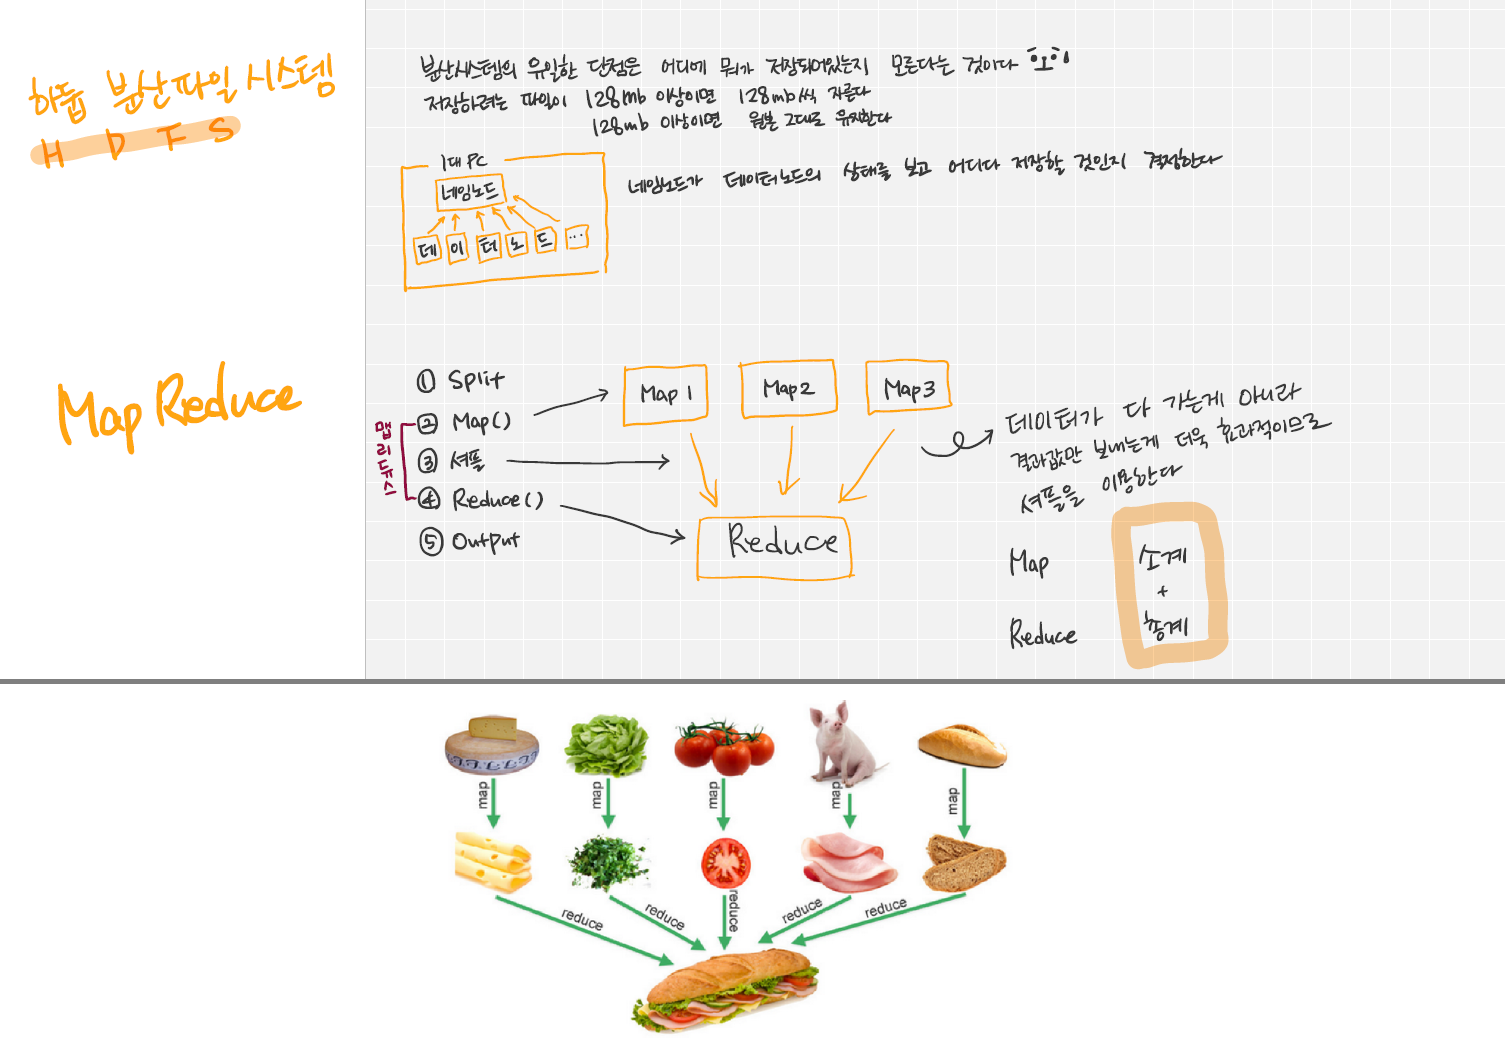 하둡 분산파일시스템
H D F S
분산시스템의 유일한 단점은 어디에 뭐가 저장되어있는지 모른다는 것이다
저장하려는 파일이 128mb 이상이면 128mb씩 자른다
128mb 이상이면 원본 그대로 유지한다
1대 PC
네임노드
데 이 터 노 드 ...
네임노드가 데이터노드의 상태를 보고 어디다 저장할 것인지 결정한다
Map Reduce
① Split
② Map()
③ 셔플
④ Reduce()
⑤ Output
맵리듀스
Map 1
Map2
Map3
Reduce
데이터가 다 가는게 아니라
결과값만 보내는게 더욱 효과적이므로
셔플을 이용한다
Map 소계
+
Reduce 총계
map map map map map
reduce reduce reduce reduce reduce